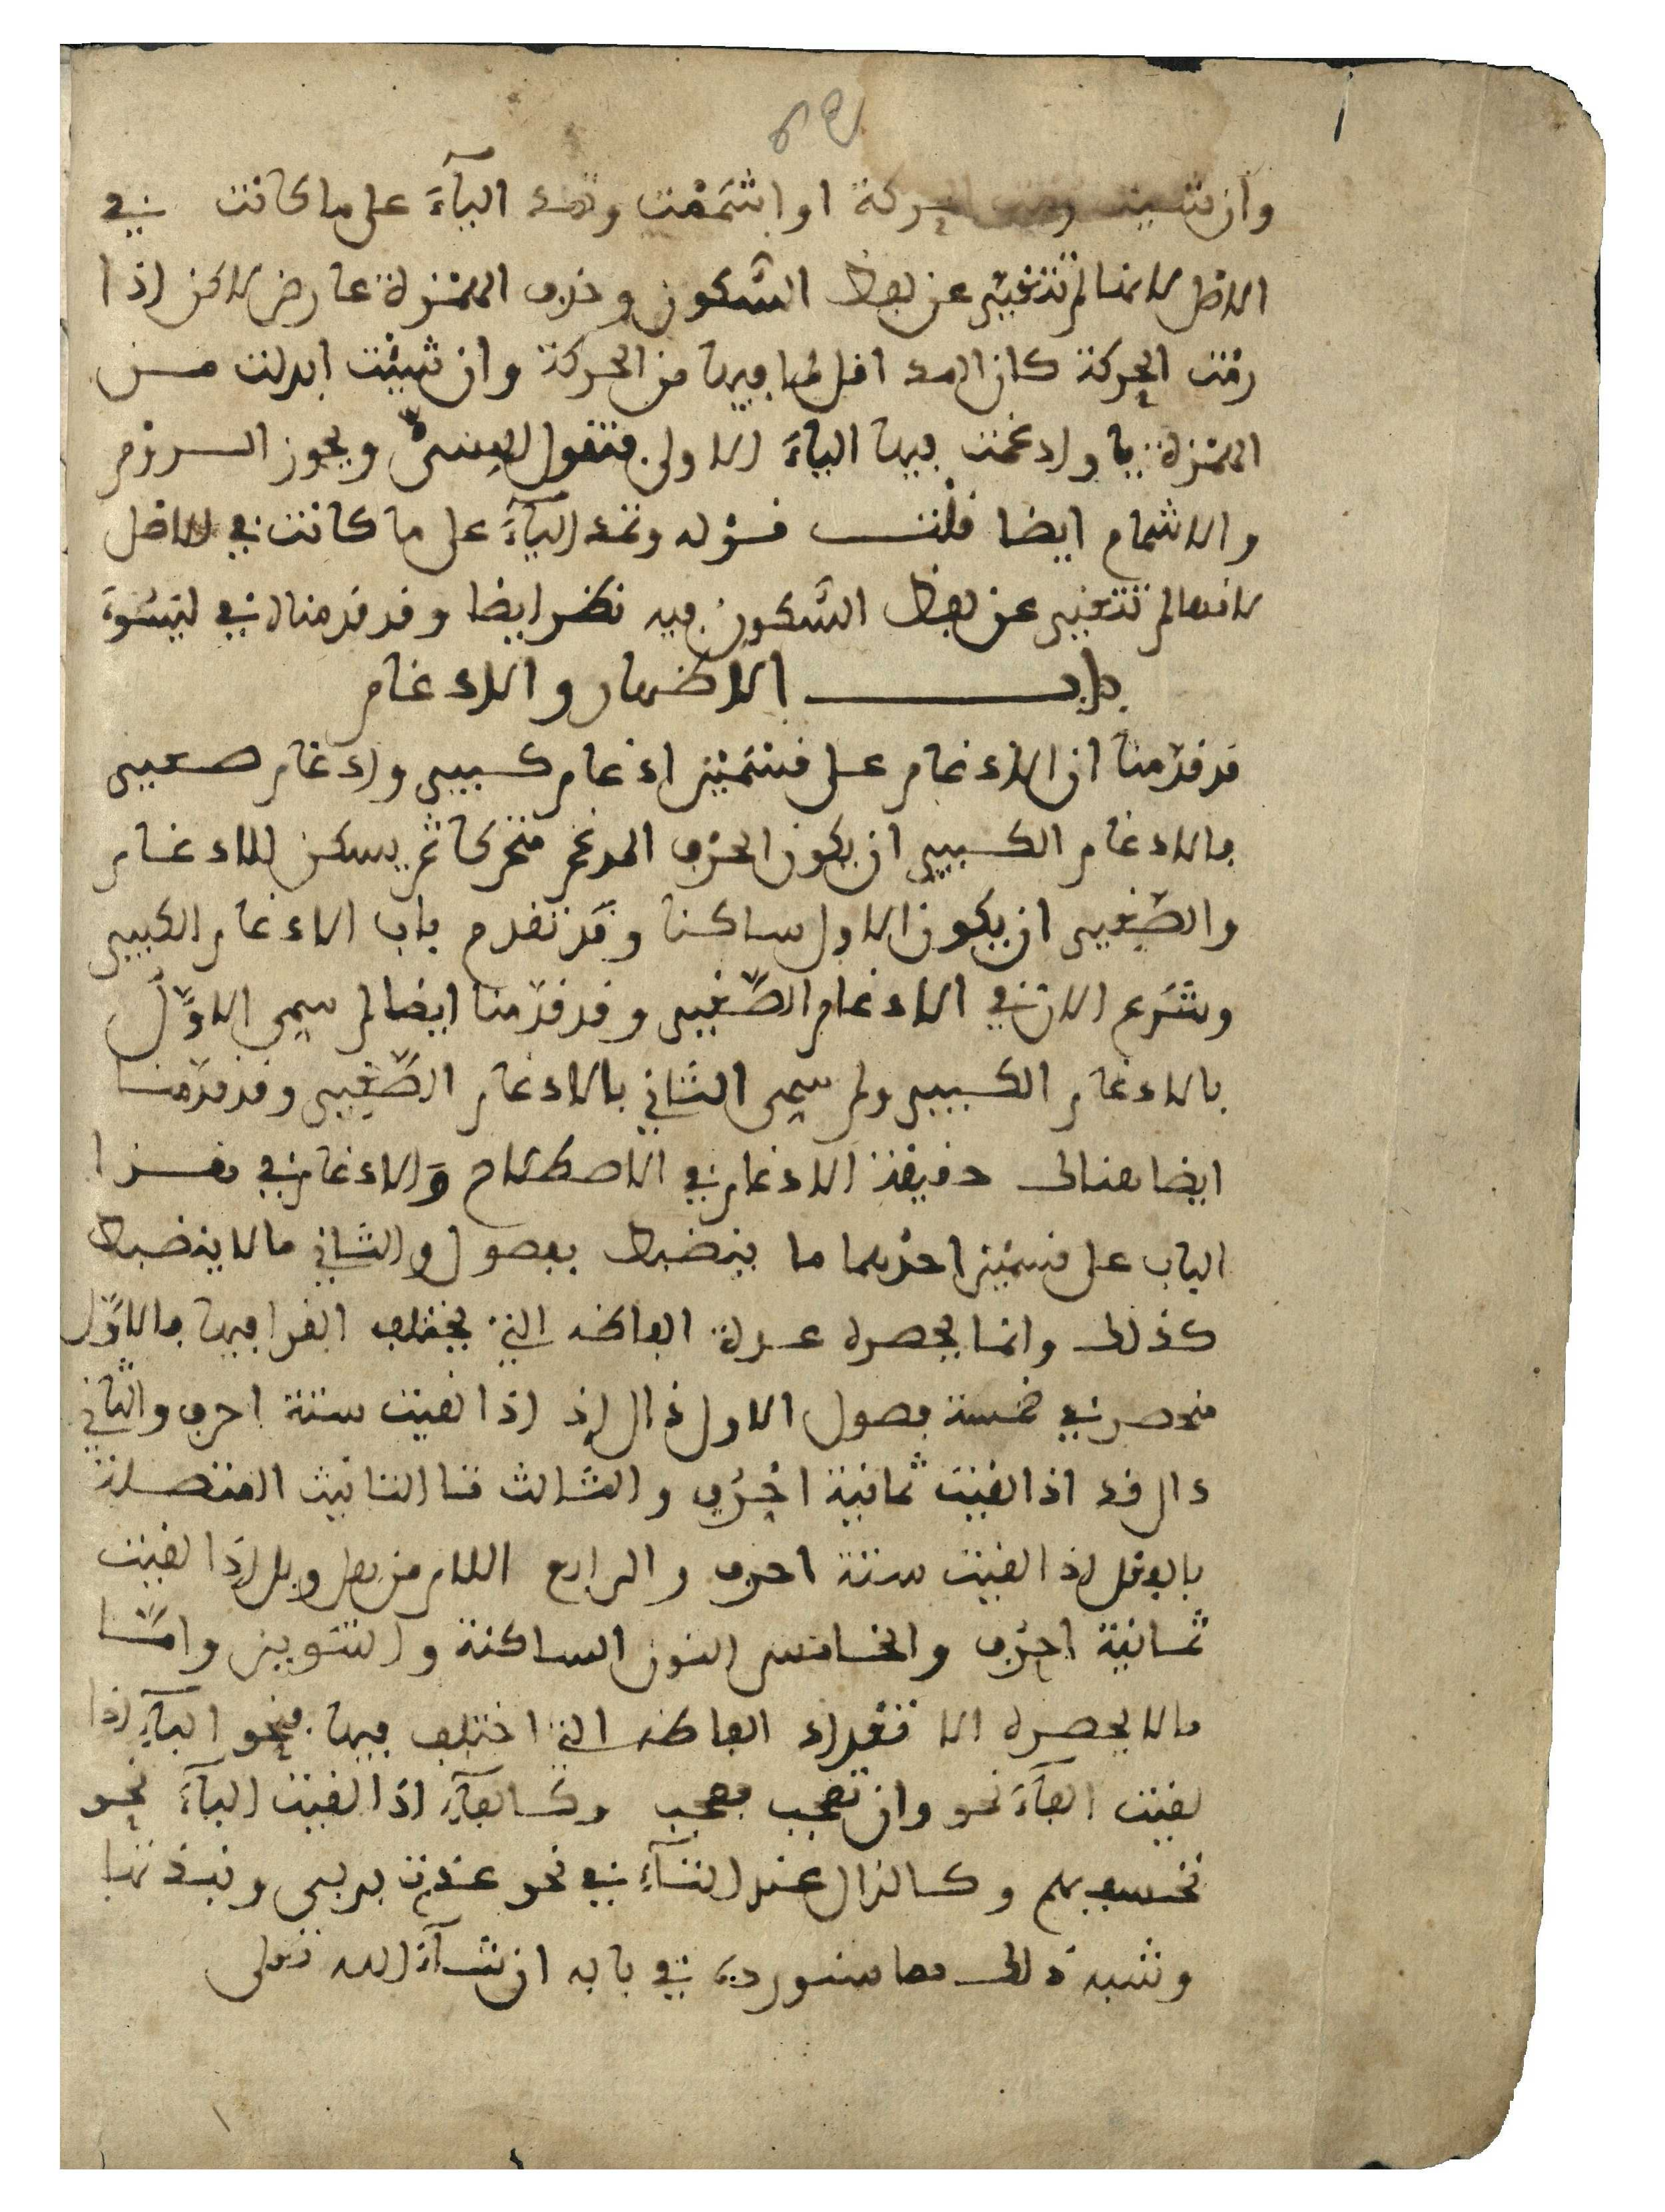 وان شيت رمت الحركة او اشممت وتمد اليآء على ما كانت في
الاصل لانها لم تتغير عن لفظ السكون وحذف الهمزة عارض لاكن اذا
رمت الحركة كان المد اقل لما فيها من الحركة وان شيئت ابدلت من
الهمزة يا وادغمت فيها الياء الاولى فتقول المسىّ ويجوز الروم
والاشمام ايضا قلت قوله وتمد اليآء على ما كانت في الاصل
لانها لم تتغير عن لفظ السكون فيه نظر ايضا وقد قدمناه في ليسوء
باب الاظهار والادغام
قد قدّمنا ان الادغام على قسمين ادغام كبير وادغام صغير
فالادغام الكبير ان يكون الحرف المدغم متحركا ثم يسكن للادغام
والصّغير ان يكون الاول ساكنا وقد تقدم باب الادغام الكبير
وشرع الان في الادغام الصّغير وقد قدّمنا ايضا لم سمي الاوّل
بالادغام الكبير ولم سمي الثاني بالادغام الصّغير وقد قدّمنا
ايضا هنالك حقيقة الادغام في الاصطلاح والادغام في هذا
الباب على قسمين احدهما ما ينضبط بفصول والثاني ما لا ينضبط
كذلك وانما يحصره عدة الفاظه التي يختلف القرا فيها فالاوّل
منحصر في خمسة فصول الاول ذال اذ اذا لقيت ستة احرف والثاني
دال قد اذا لقيت ثمانية احرف والثالث تا التانيث المتصلة
بالفعل اذا لقيت ستة احرف والرابع اللام من هل وبل اذا لقيت
ثمانية احرف والخامس النون الساكنة والتنوين وامّا
ما لا يحصره الا تعداد الفاظه التي اختلف فيها فنحو البآء اذا
لقيت الفآء نحو وان تعجب فعجب وكالفآء اذا لقيت البآء نحو
نخسف بهم وكالذال عند التآء في نحو عذت بربي ونبذتها
وشبه ذلك مما سنورده في بابه ان شآء الله تعلى